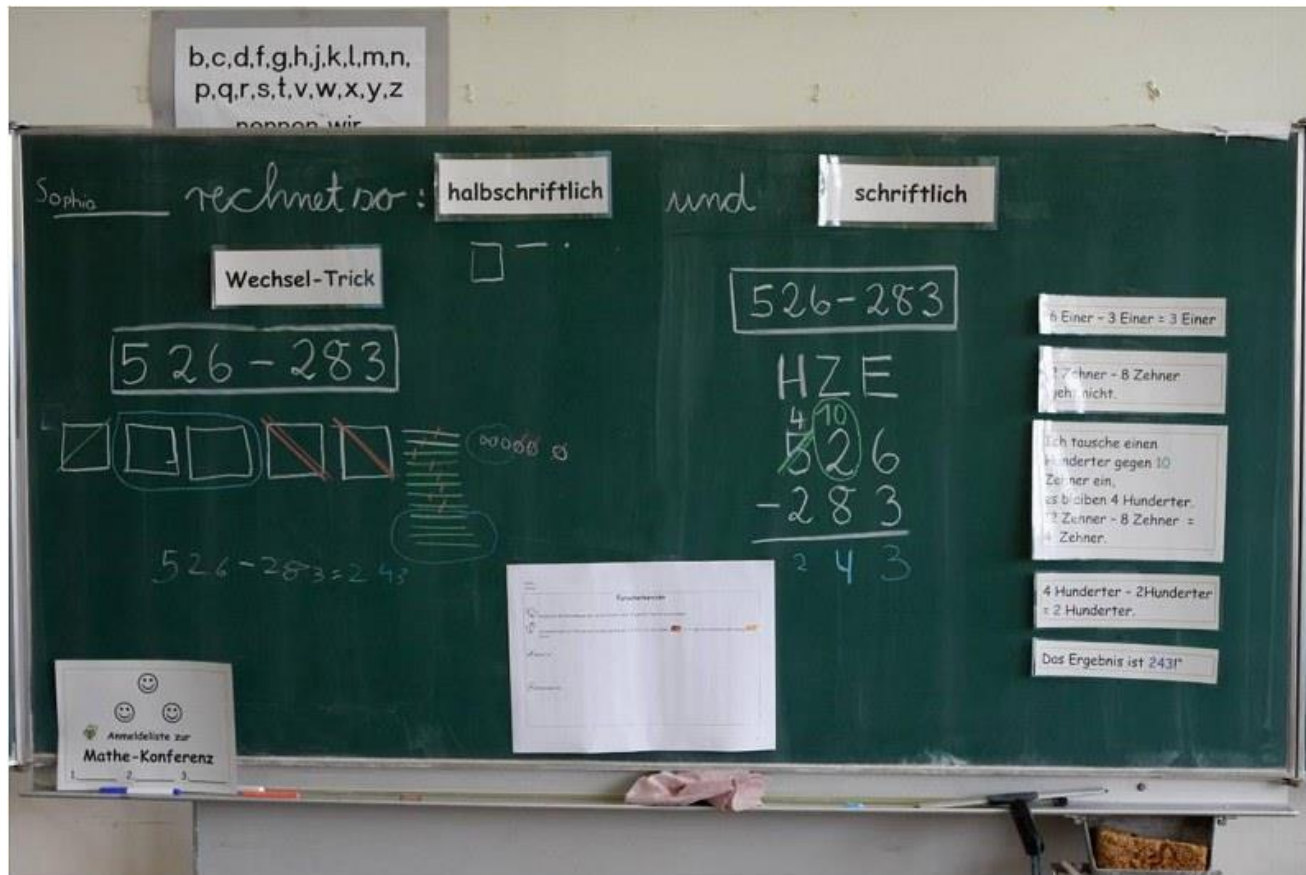 b,c,d,f,g,h,j,k,l,m,n,
p,q,r,s,t,v,w,x,y,z
nennen wir
Sophia rechnet so: halbschriftlich und schriftlich
Wechsel-Trick
526-283
526-283=243
526-283
H Z E
4 10
5 2 6
-2 8 3
2 4 3
6 Einer - 3 Einer = 3 Einer
2 Zehner - 8 Zehner
geht nicht.
Ich tausche einen
Hunderter gegen 10
Zehner ein,
es bleiben 4 Hunderter.
12 Zehner - 8 Zehner =
4 Zehner.
4 Hunderter - 2Hunderter
= 2 Hunderter.
Das Ergebnis ist 243!"
Forscherbericht
Anmeldeliste zur
Mathe-Konferenz
1.____ 2.____ 3.____